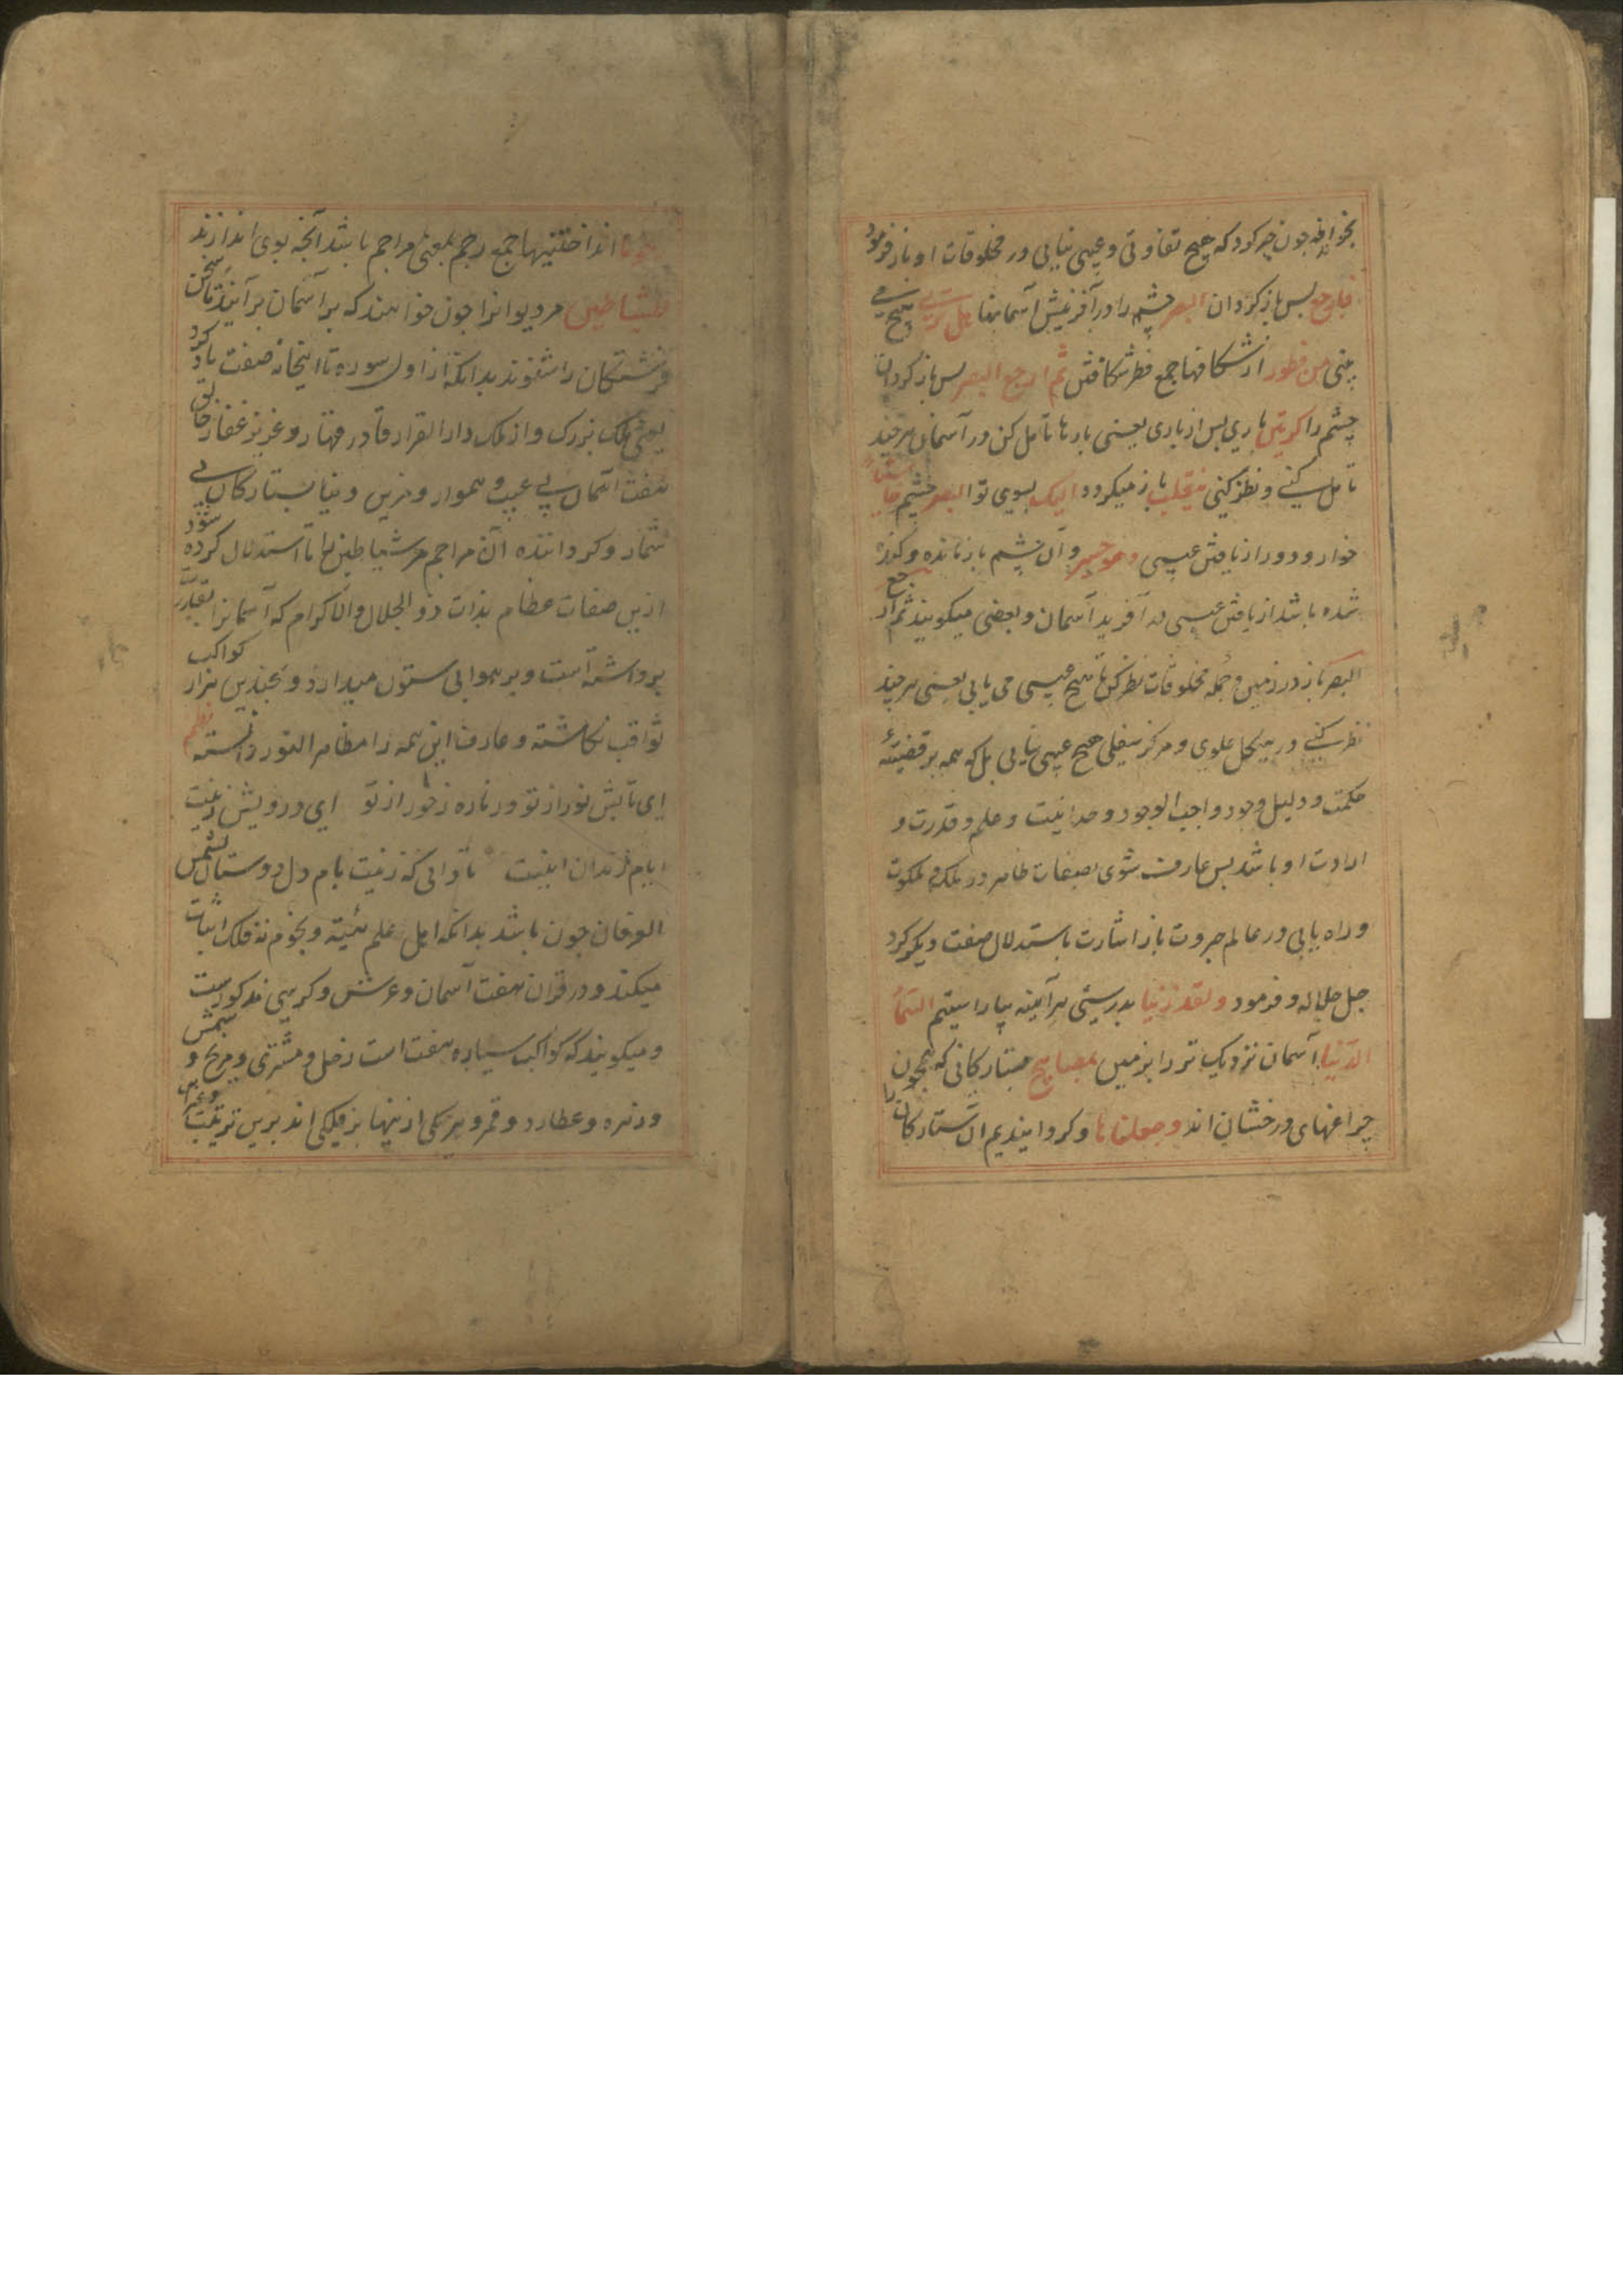 بخوانند چون خبر کرد که هیچ تفاوتی و عیبی نیابی در مخلوقات او باز فرمود
فارجع پس باز گردان البصر چشم را در آفرینش آسمانها هل تری هیچ می
بینی من فطور از شکافها جمع فطر شکافتن ثم ارجع البصر پس باز گردان
چشم را کرتین باری پس از باری یعنی بارها تأمل کن در آسمان هر چند
تأمل کنی و نظر کنی ینقلب باز میگردد الیک بسوی تو البصر چشم خاسئا
خوار و دور از یافتن عیبی و هو حسیر و آن چشم باز مانده و کند
شده باشد از یافتن عیبی در آفرید آسمان و بعضی میگویند ثم ارجع
البصر باز در زمین و جمله مخلوقات نظر کن تا هیچ عیبی می یابی یعنی هر چند
نظر کنی در هیکل علوی و مرکز سفلی هیچ عیبی نیابی بل که همه بر قضیه
حکمت و دلیل وجود واجب الوجود و حدانیت و علم و قدرت و
ارادت او باشد پس عارف شوی بصفات ظاهر در ملک و ملکوت
و راه یابی در عالم جبروت باز اشارت باستدلال صفت دیگر کرد
جل جلاله و فرمود و لقد زینا بدرستی هر آینه بیاراستیم السماء
الدنیا آسمان نزدیک تر را بزمین بمصابیح بستارگانی که همچون
چراغهای درخشان اند و جعلناها و گردانیدیم آن ستارگان را
رجوما انداختنیها جمع رجم بمعنی مراجم باشد آنچه بوی اندازند
للشیاطین مر دیوانرا چون خواهند که بر آسمان بر آیند تا سخن
فرشتگان را شنوند بدانکه از اول سوره تا اینجا نه صفت یاد کرد
یعنی ملک بزرگ و از ملک دار القرار قادر قهار و عزیز غفار خالق
هفت آسمان بی عیب و هموار و مزین دنیا بستارگان بی
شمار و گرداننده آن مراجم مر شیاطین را تا استدلال کرده شود
ازین صفات عظام بذات ذو الجلال و الاکرام که آسمانرا بقدرت
برداشته است و بر هوا بی ستون میدارد و بچندین هزار کواکب
ثواقب نگاشته و عارف این همه را مظاهر النور دانسته نظم
ای تابش نور از تو در نار ز خور از تو ای درویش زینت
ایام زندان اینست تا دانی که زینت بام دل دوستان شمس
العرفان چون باشد بدانکه اهل علم هیئة و نجوم نه فلک اثبات
میکنند و در قرآن هفت آسمان و عرش و کرسی مذکورست
و میگویند که کواکب سیاره هفت است زحل و مشتری و مریخ و شمس
و زهره و عطارد و قمر و هر یکی ازینها بر فلکی اند برین ترتیب